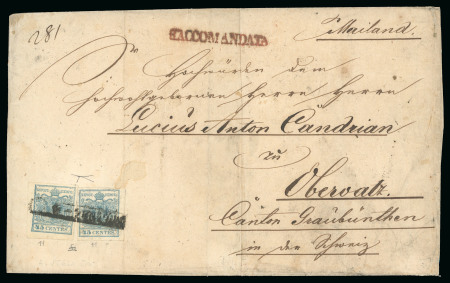 281
RACCOMANDATA
p Mailand.
Hochwürden dem
hochwohlgebornen Herrn Herrn
Lucius Anton Candrian
zu
Obervatz.
Canton Graubünthen
in der Schweiz
45 CENTES 45 CENTES